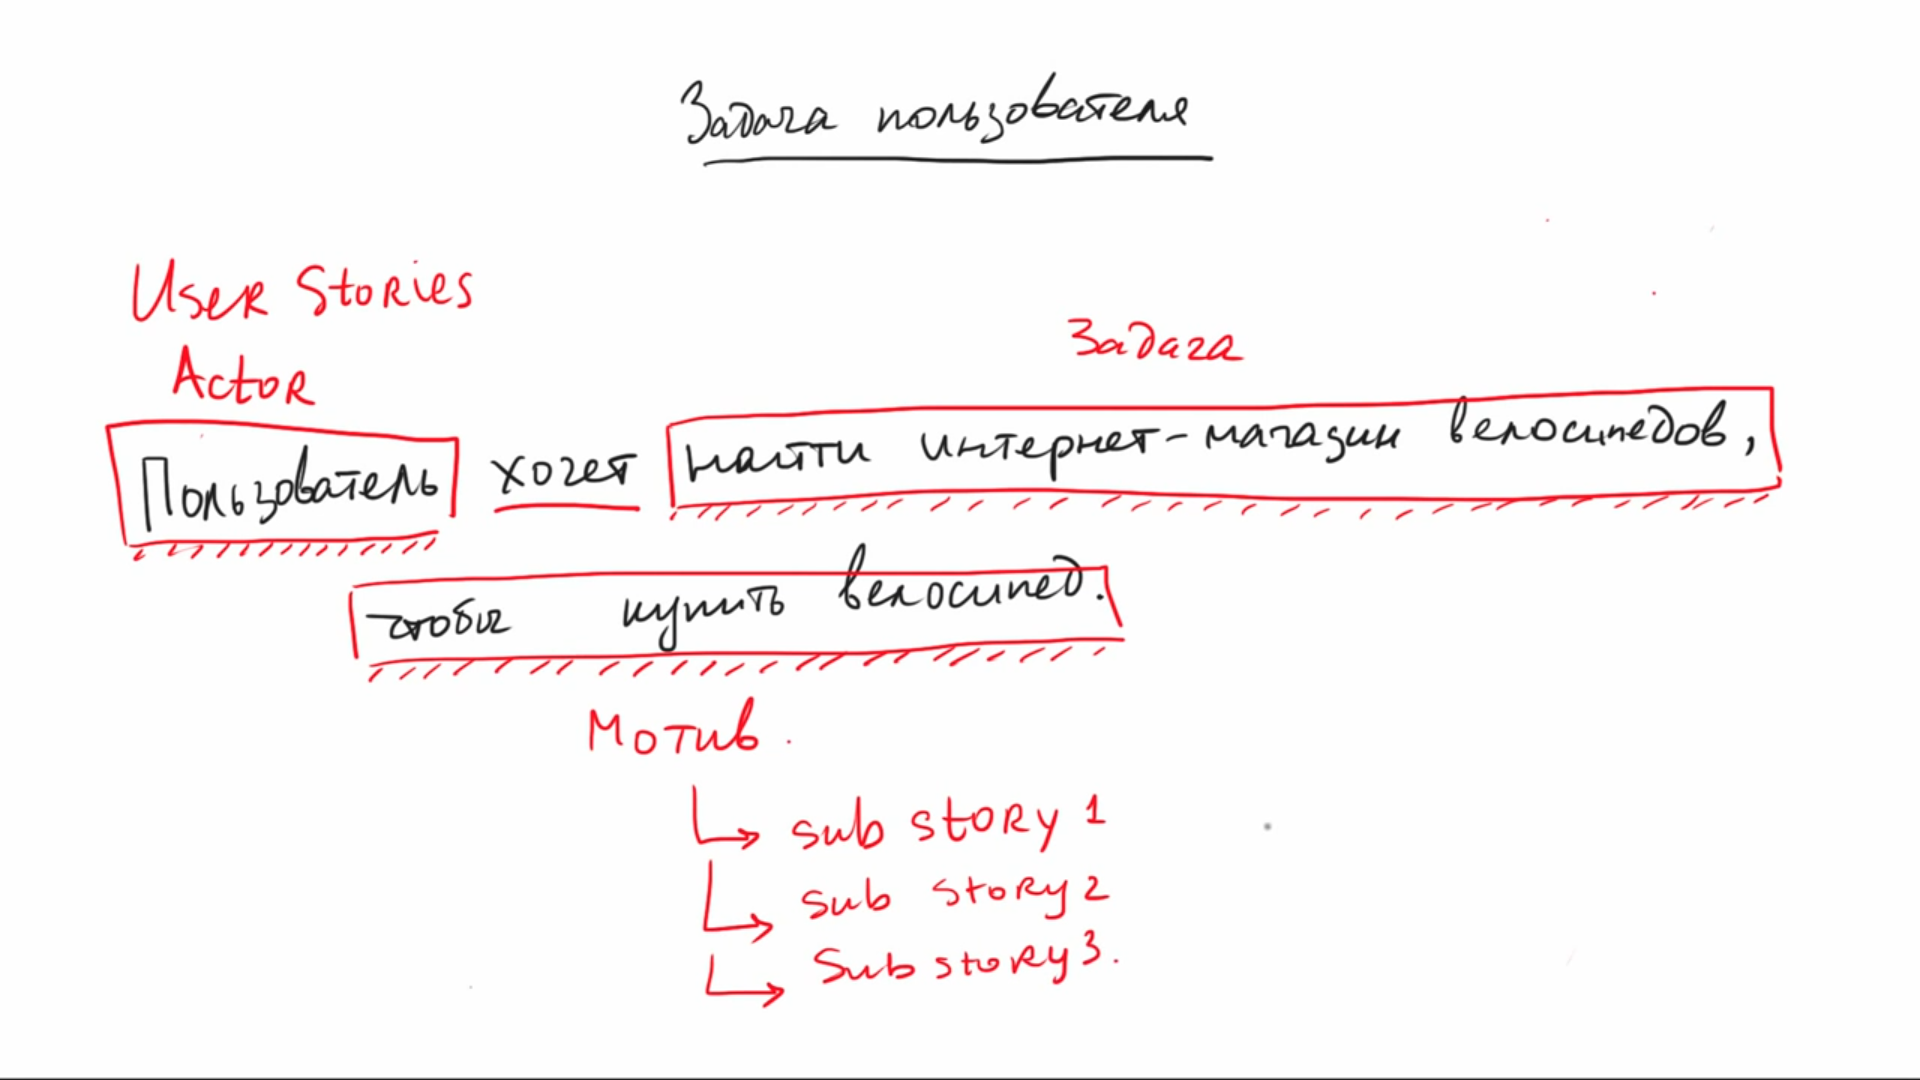 Задача пользователя
User Stories
Actor
Задача
Пользователь хочет найти интернет-магазин велосипедов,
чтобы купить велосипед.
Мотив.
sub story 1
sub story 2
Sub story 3.